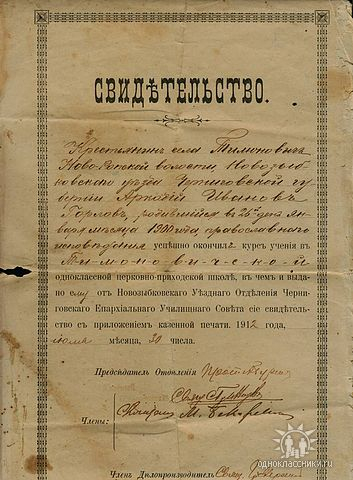 СВИДѢТЕЛЬСТВО.
Крестьянинъ села Тимоновичъ
Ново-Ропской волости, Новозыб-
ковскаго уѣзда Черниговской гу-
берніи Иванов
родившійся въ 26 день Ян-
варя мѣсяца 1900 года православнаго
исповѣданія успѣшно окончилъ курсъ ученія въ
Тимоновической
одноклассной церковно-приходской школѣ, въ чемъ и выдано
ему отъ Новозыбковскаго Уѣзднаго Отдѣленія Черни-
говскаго Епархіальнаго Училищнаго Совѣта сіе свидѣтель-
ство съ приложеніемъ казенной печати. 1912 года,
мѣсяца, 20 числа.
Предсѣдатель Отдѣленія
Члены:
Членъ Дѣлопроизводитель
одноклассники.ru